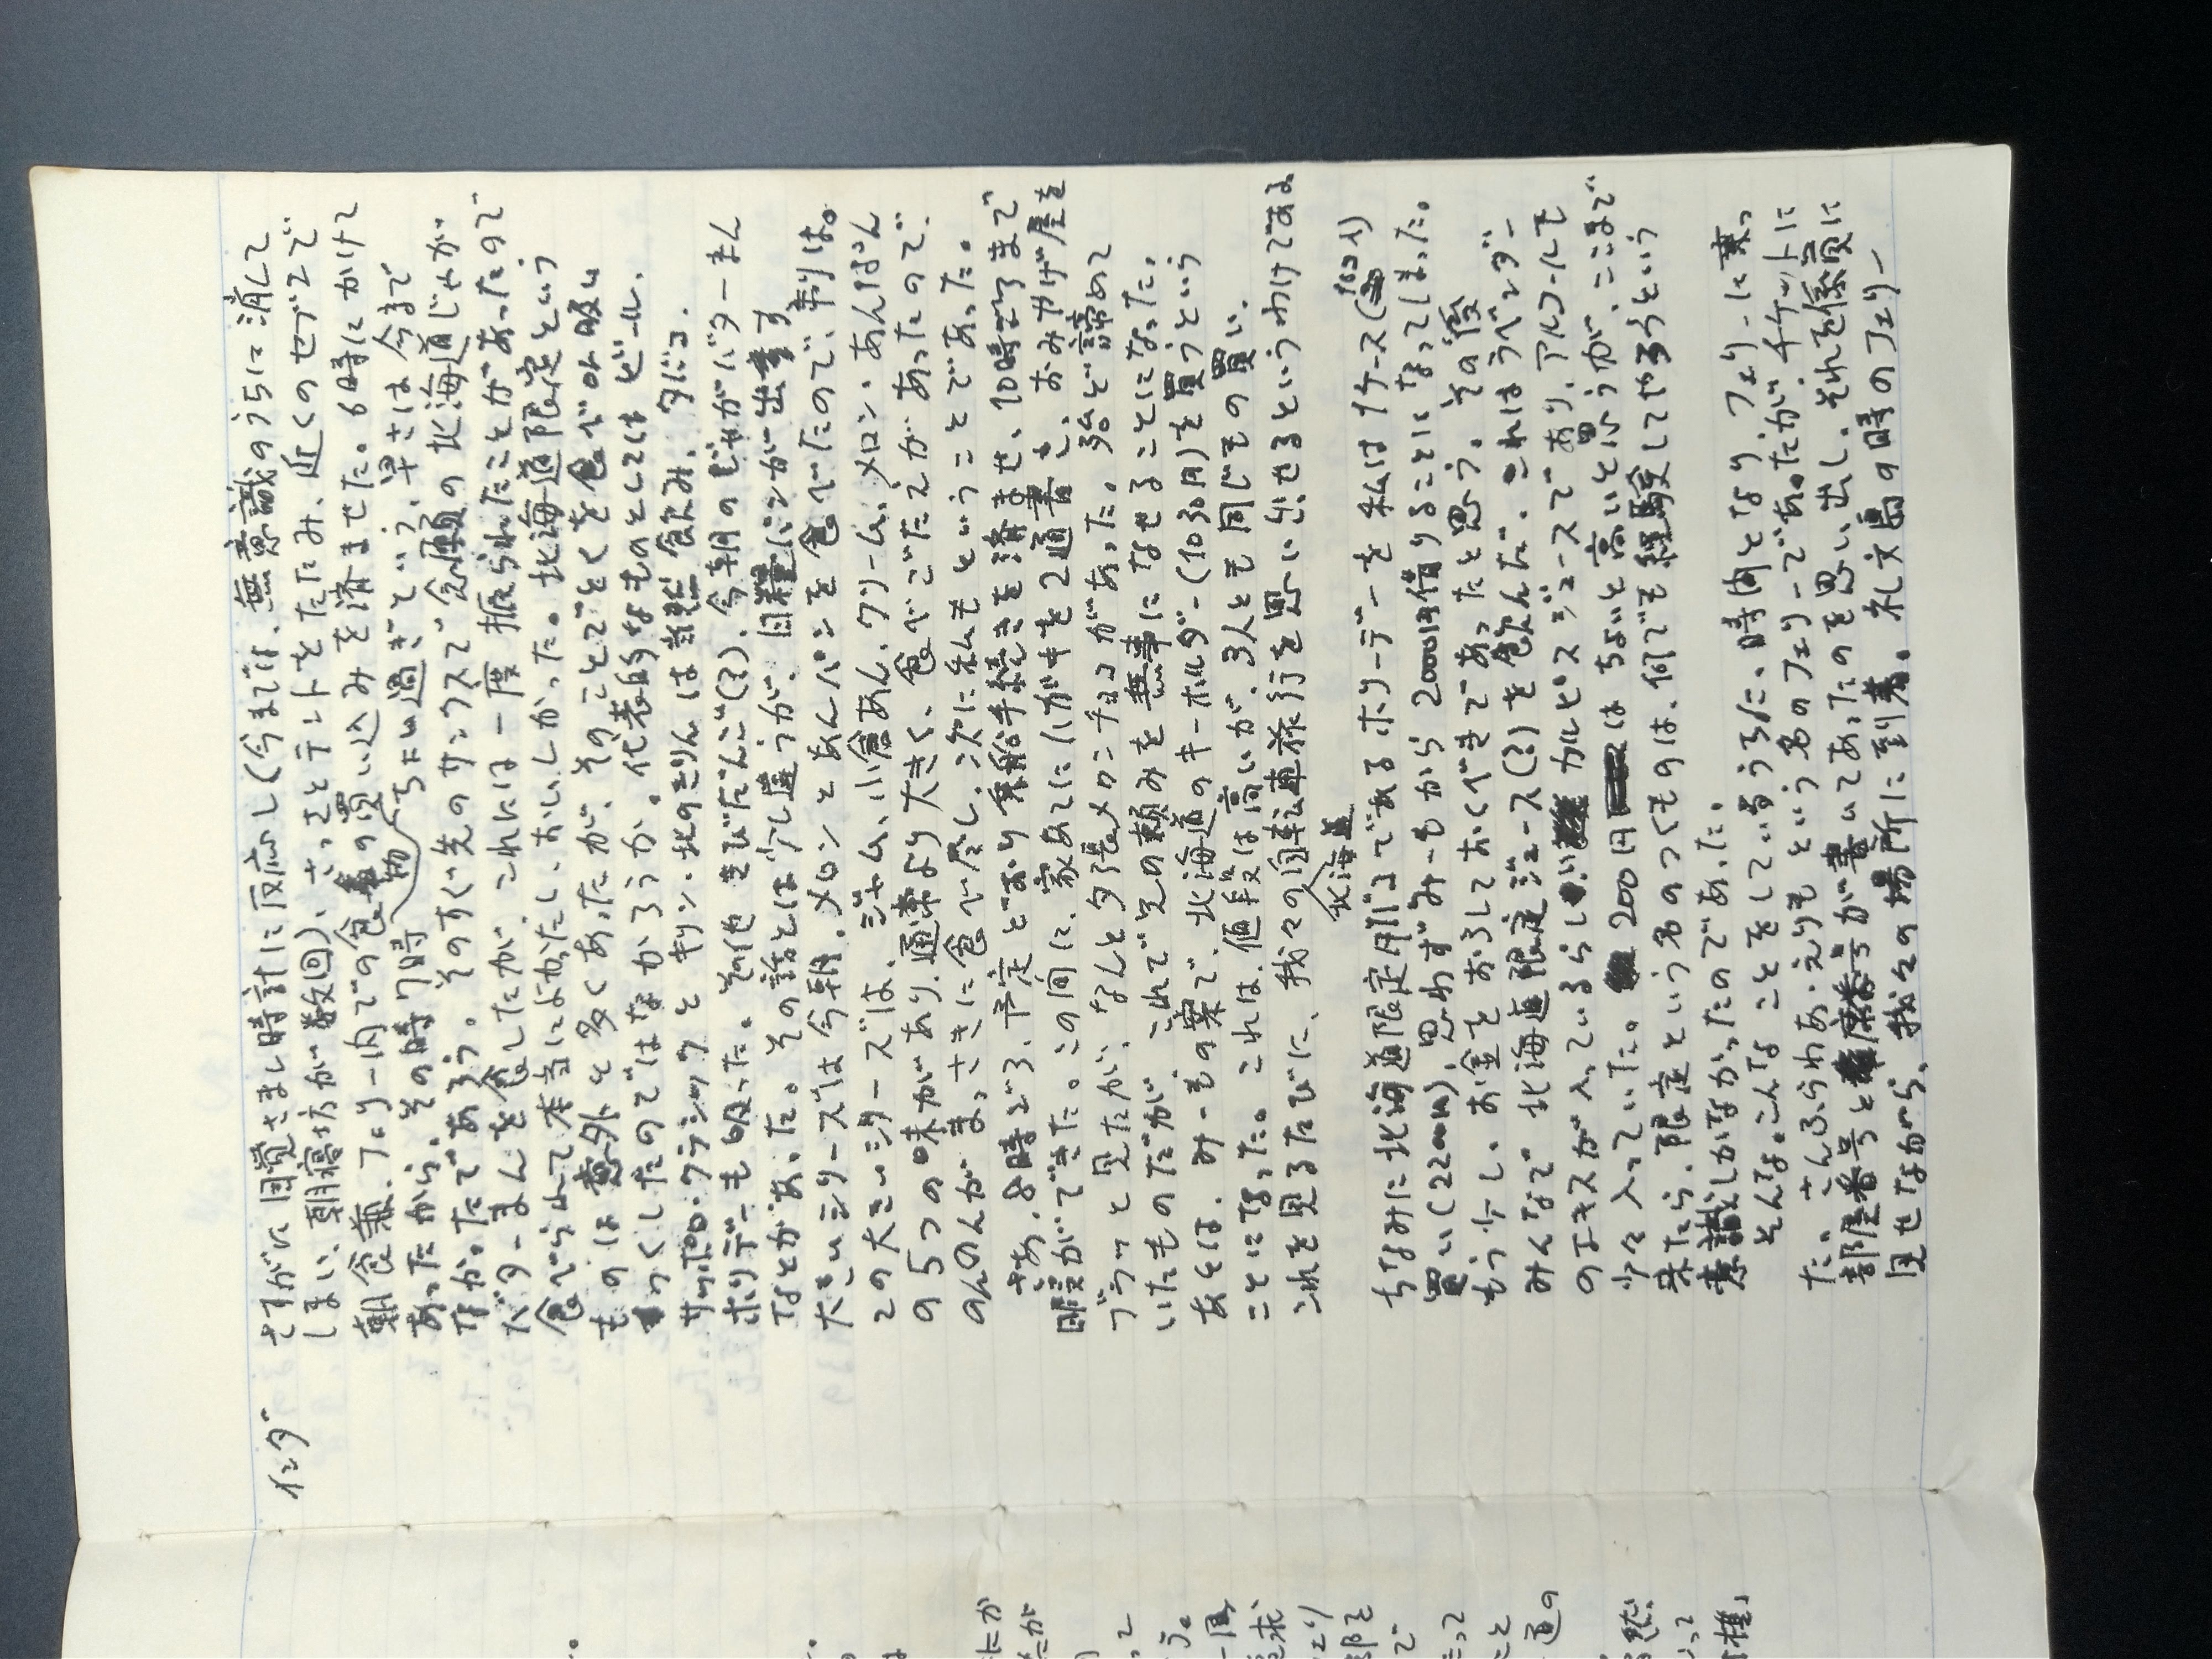 イェンダ
さすがに目覚まし時計に反応し(今までは、無意識のうちに消して
しまい、朝寝坊が数回)、さっさとテントをたたみ、近くのセブンで
朝食兼、フェリー内での食事の買い込みを済ませた。6時にかけて
あったから、その時7時ちょい過ぎという、早さは今まで
なかったであろう。そのすぐ先のサンクスで念願の北海道じゃが
バターまんを食したが、これには一度振られたことがあったので
食べられて本当によかったし、おいしかった。北海道限定という
ものは意外と多くあったが、そのことごとくを食べOr吸い
つくしたのではなかろうか。代表的なものとしてはビール。
サッポロ・クラシックとキリン・北のきりんは当然飲み、タバコ、
ホリデーも吸った。その他きびだんご(?)、今朝のじゃがバターまん
などがあった。その話とは少し違うが、日糧パンが出す
大きいシリーズは今朝、メロンとあんパンを食べたので、制は。
この大きいシリーズは、ジャム、小倉あん、クリーム、メロン、あんぱん
の5つの味があり、通常より大きく、食べごたえがあったので、
のんのんがまっさきに食べ尽し、次に私もということであった。
さあ、8時ごろ、予定どおり乗船手続きを済ませ、10時ごろまで
暇ができた。この間に、家あてにハガキを2通書き、おみやげ屋を
ブラッと見たが、なんと夕張メロンチョコがあった。殆ど諦めて
いたものだが、これで兄の頼みを無事になせることになった。
あとは、みーもの案で、北海道のキーホルダー(1030円)を買うという
ことになった。これは、値段は高いが、3人とも同じもの買い、
これを見るたびに、我々の北海道自転車旅行を思い出せるというわけである
ちなみに北海道限定タバコであるホリデーを私は1ケース(10コ入り)
買い(2200円)、思わずみーもから2000円借りることになってしまった。
もう少し、お金をおろしておくべきであったと思う。その後
みんなで北海道限定ジュース(?)を飲んだ。これはラベンダー
のエキスが入っているらしいカルピスジュースであり、アルコールも
少々入っていた。200円はちょいと高いと思うが、ここまで
来たら、限定という名のつくものは、何でも経験してやろうという
意識しかなかったのであった。
そんな。こんなことをしているうちに、時間となり、フェリーに乗っ
た。さんふらわあ・えりもという名のフェリーであったが、チケットに
部屋番号と座席番号が書いてあったのを思い出し、それを係員に
見せながら、我々の場所に到着。礼文島の時のフェリー